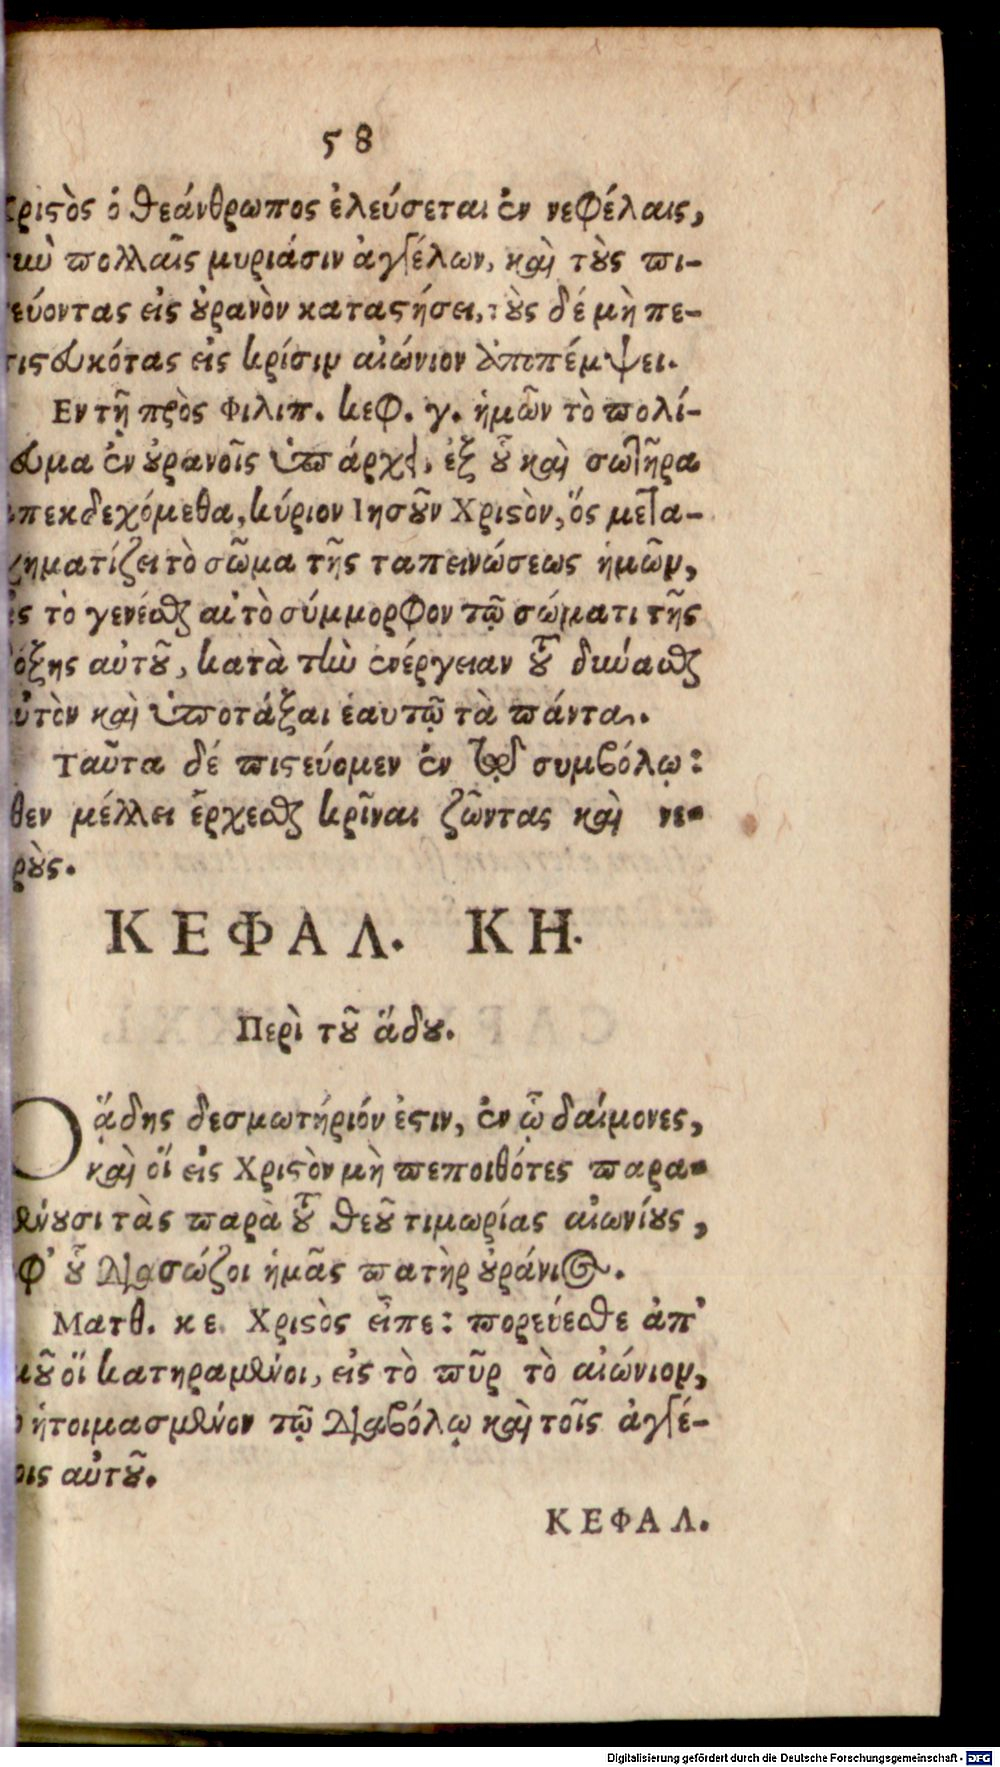 58
χριστὸς ὁ θεάνθρωπος ἐλεύσεται ἐν νεφέλαις,
σὺν πολλαῖς μυριάσιν ἀγγέλων, καὶ τοὺς πι-
στεύοντας εἰς οὐρανὸν καταστήσει, τοὺς δέ μὴ πε-
πιστευκότας εἰς κρίσιν αἰώνιον ἀποπέμψει.
Εν τῇ πρὸς Φιλιπ. κεφ. γ. ἡμῶν τὸ πολί-
τευμα ἐν οὐρανοῖς ὑπάρχει, ἐξ οὗ καὶ σωτῆρα
ἀπεκδεχόμεθα, κύριον Ιησοῦν Χριστὸν, ὅς μετα-
σχηματίζει τὸ σῶμα τῆς ταπεινώσεως ἡμῶν,
εἰς τὸ γενέσθαι αὐτὸ σύμμορφον τῷ σώματι τῆς
δόξης αὐτοῦ, κατὰ τὴν ἐνέργειαν τοῦ δύνασθαι
αὐτὸν καὶ ὑποτάξαι ἑαυτῷ τὰ πάντα.
Ταῦτα δέ πιστεύομεν ἐν τῷ συμβόλῳ:
ὅθεν μέλλει ἔρχεσθαι κρῖναι ζῶντας καὶ νε-
κροὺς.
ΚΕΦΑΛ. ΚΗ.
Περὶ τοῦ ἅδου.
Ο ᾅδης δεσμωτήριόν ἐστιν, ἐν ᾧ δαίμονες,
καὶ οἵ εἰς Χριστὸν μὴ πεποιθότες παρα-
μένουσι τὰς παρὰ τοῦ θεοῦ τιμωρίας αἰωνίους,
ἀφ' οὗ διασώζοι ἡμᾶς πατὴρ οὐράνιος.
Ματθ. κε. Χριστὸς εἶπε: πορεύεσθε ἀπ'
ἐμοῦ οἵ κατηραμένοι, εἰς τὸ πῦρ τὸ αἰώνιον,
τὸ ἡτοιμασμένον τῷ διαβόλῳ καὶ τοῖς ἀγγέ-
λοις αὐτοῦ.
ΚΕΦΑΛ.
Digitalisierung gefördert durch die Deutsche Forschungsgemeinschaft - DFG